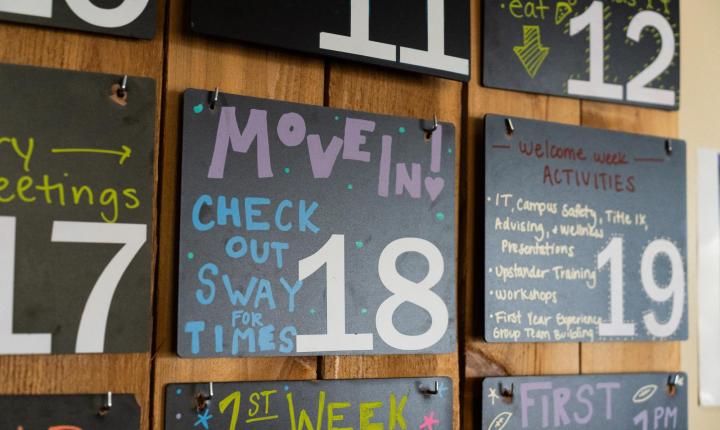 11
eat
12
17
→
eetings
MOVE IN!
CHECK
OUT
SWAY
FOR
TIMES
18
- Welcome week -
ACTIVITIES
• IT, Campus Safety, Title IX,
Advising, + wellness
Presentations
• Upstander Training
• Workshops
• First Year Experience
Group Team Building
19
1ST WEEK
FIRST
1PM